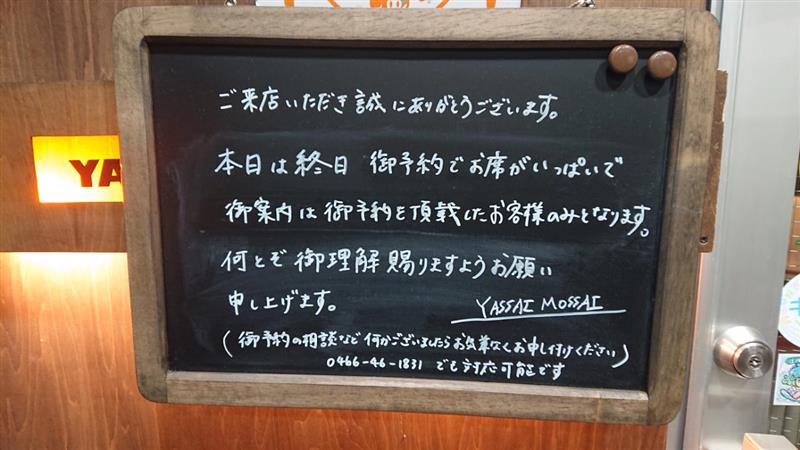 ご来店いただき誠にありがとうございます。
本日は終日 御予約でお席がいっぱいで
御案内は御予約を頂載したお客様のみとなります。
何とぞ御理解賜りますようお願い
申し上げます。
YASSAI MOSSAI
(御予約の相談など何かございましたらお気軽なくお申し付けください)
0466-46-1831 でも対応可能です
YA